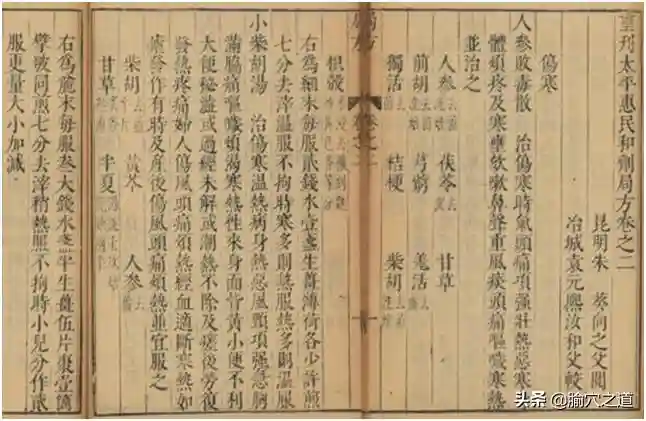 重刊太平惠民和劑局方卷之二
昆明朱 葵向之父閱
冶城袁元熙汝和父較
傷寒
人參敗毒散 治傷寒時氣頭痛項強壯熱惡寒身
體煩疼及寒壅欬嗽鼻塞聲重風痰頭痛嘔噦寒熱
並治之
人參 茯苓 甘草
前胡 芎藭 羌活
獨活 桔梗 柴胡
局方 卷之二
枳殼
右為細末每服貳錢水壹盞生薑薄荷各少許煎
七分去滓溫服不拘時寒多則熱服熱多則溫服
小柴胡湯 治傷寒溫熱病身熱惡風頸項強急胸
滿脇痛嘔噦煩渴寒熱往來身面皆黃小便不利
大便秘澁或過經未解或潮熱不除及瘥後勞復
發熱疼痛婦人傷風頭痛煩熱經血適斷寒熱如
瘧發作有時及產後傷風頭痛煩熱並宜服之
柴胡 黃芩 人參
甘草 半夏
右為麁末每服叁大錢水盞半生薑伍片棗壹箇
擘破同煎七分去滓稍熱服不拘時小兒分作貳
服更量大小加減
头条 @腧穴之道